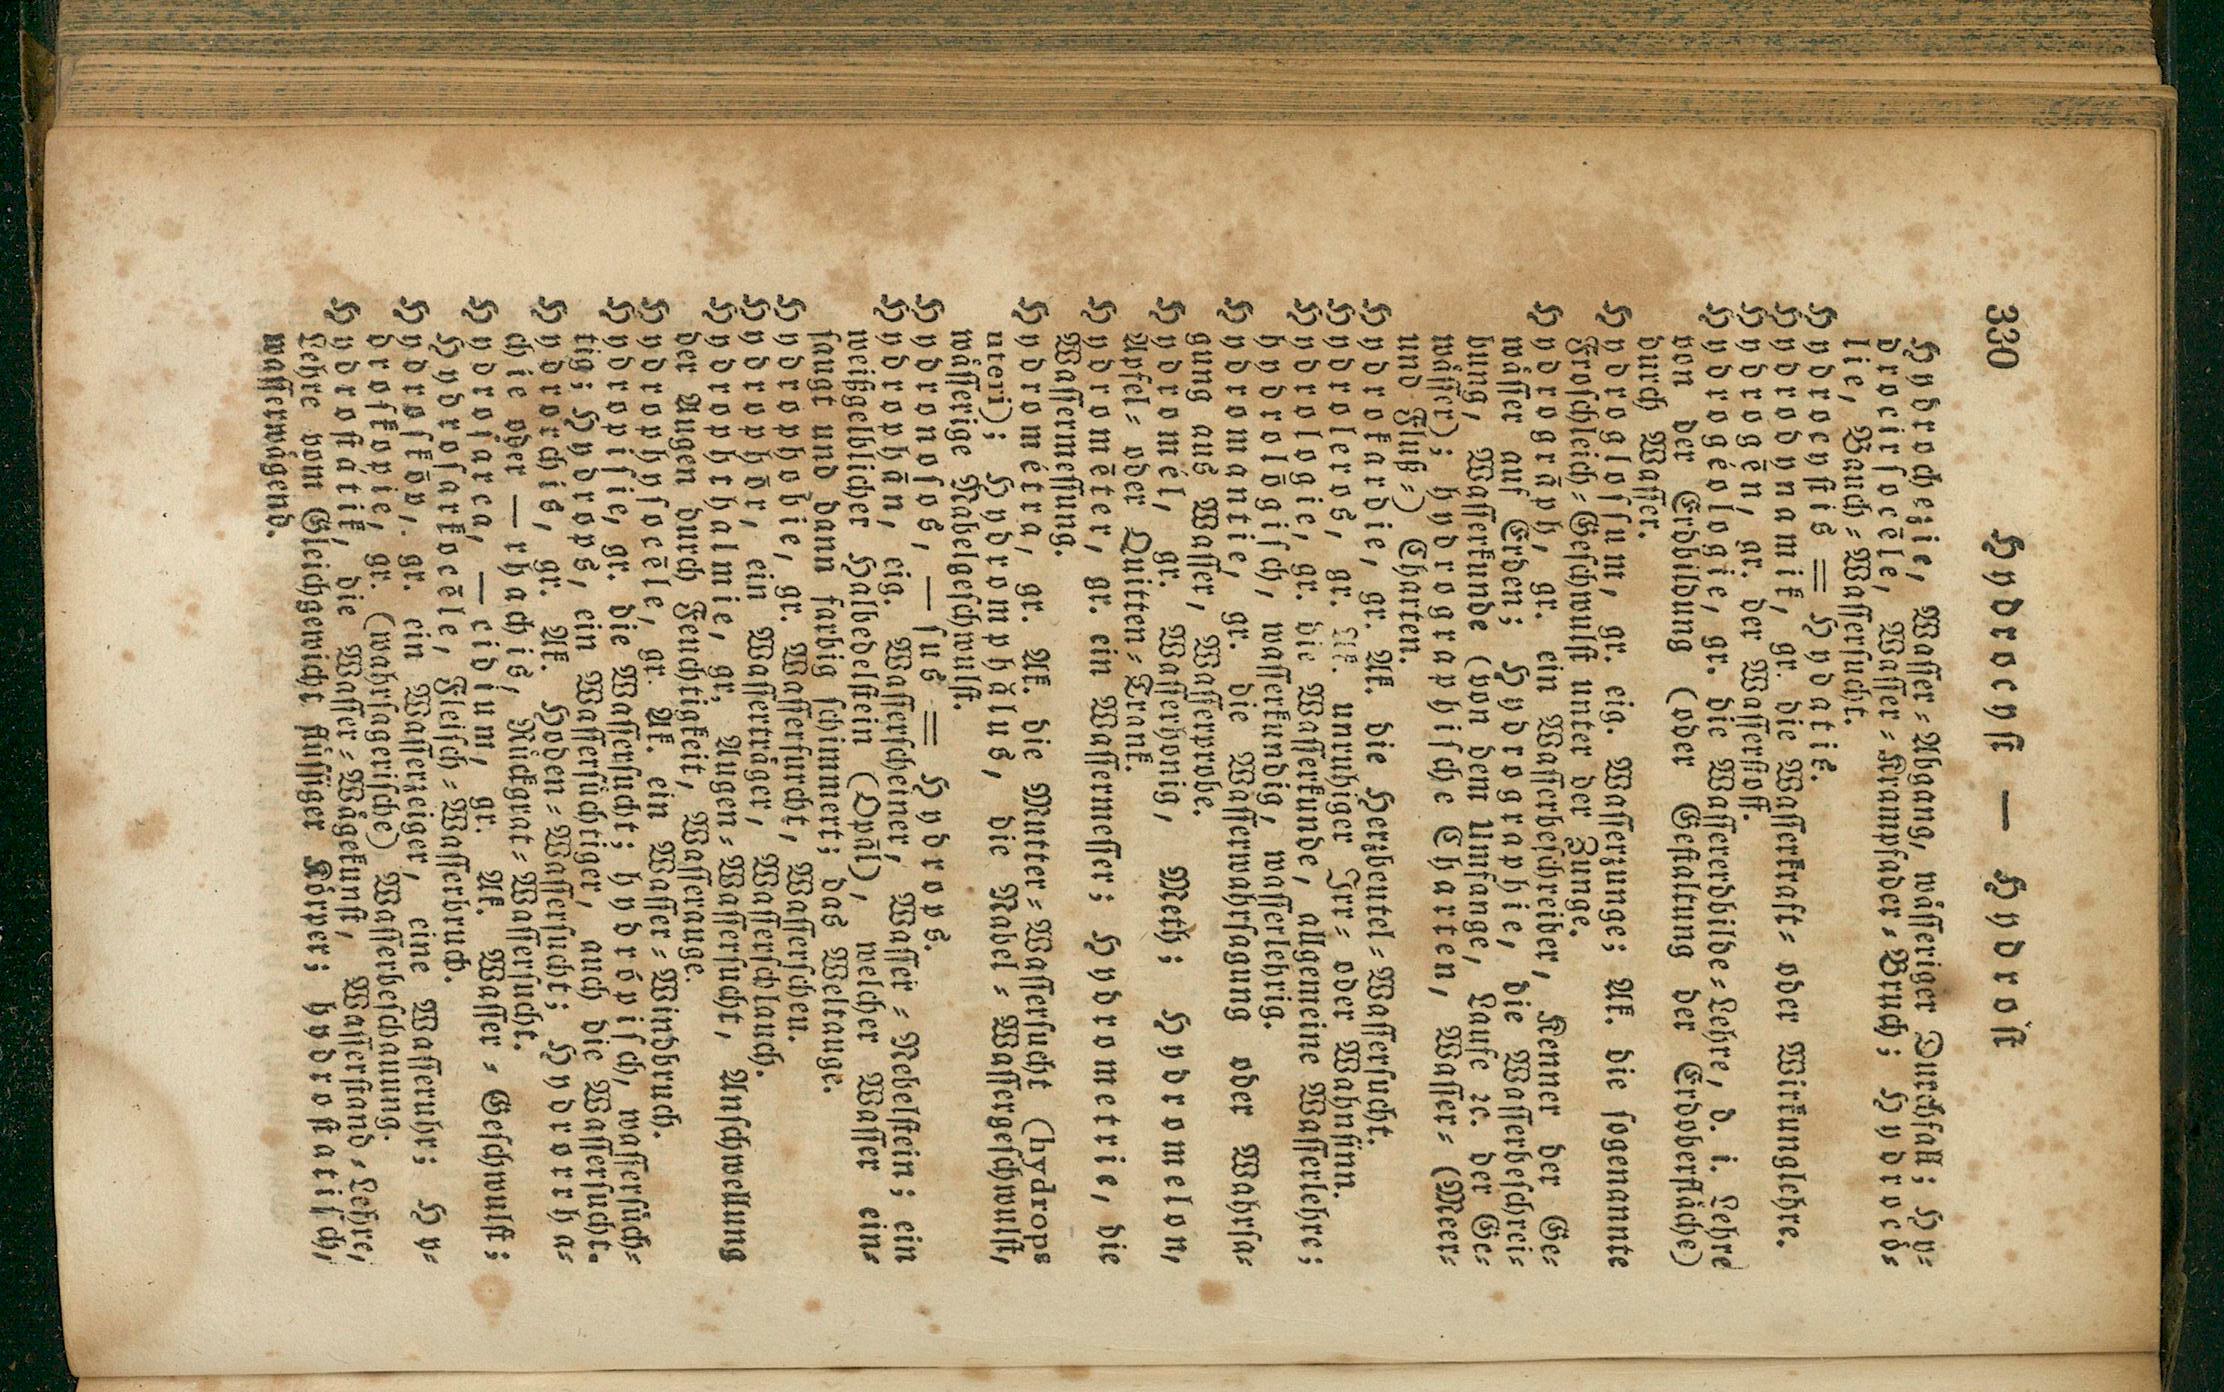 330 Hydrocyst — Hydrost
Hydrochezie, Wasser=Abgang, wässeriger Durchfall; Hy=
drocirsocēle, Wasser=Krampfader=Bruch; Hydrocö=
lie, Bauch=Wassersucht.
Hydrocystis = Hydatis.
Hydrodynamik, gr. die Wasserkraft= oder Wirkunglehre.
Hydrogēn, gr. der Wasserstoff.
Hydrogéologie, gr. die Wassererdbilde=Lehre, d. i. Lehre
von der Erdbildung (oder Gestaltung der Erdoberfläche)
durch Wasser.
Hydroglossum, gr. eig. Wasserzunge; Ak. die sogenannte
Froschleich=Geschwulst unter der Zunge.
Hydrogrāph, gr. ein Wasserbeschreiber, Kenner der Ge=
wässer auf Erden; Hydrographie, die Wasserbeschrei=
bung, Wasserkunde (von dem Umfange, Laufe ꝛc. der Ge=
wässer); hydrographische Charten, Wasser=(Meer=
und Fluß=) Charten.
Hydrokardie, gr. Ak. die Herzbeutel=Wassersucht.
Hydroleros, gr. Ak. unruhiger Irr= oder Wahnsinn.
Hydrologie, gr. die Wasserkunde, allgemeine Wasserlehre;
hydrolōgisch, wasserkundig, wasserlehrig.
Hydromantie, gr. die Wasserwahrsagung oder Wahrsa=
gung aus Wasser, Wasserprobe.
Hydromél, gr. Wasserhonig, Meth; Hydromelon,
Apfel= oder Quitten=Trank.
Hydromēter, gr. ein Wassermesser; Hydrometrie, die
Wassermessung.
Hydromētra, gr. Ak. die Mutter=Wassersucht (hydrops
uteri); Hydromphălus, die Nabel=Wassergeschwulst,
wässerige Nabelgeschwulst.
Hydronosos, — sus = Hydrops.
Hydrophān, eig. Wasserscheiner, Wasser=Nebelstein; ein
weißgelblicher Halbedelstein (Opāl), welcher Wasser ein=
saugt und dann farbig schimmert; das Weltauge.
Hydrophobie, gr. Wasserfurcht, Wasserscheu.
Hydrophōr, ein Wasserträger, Wasserschlauch.
Hydrophthalmie, gr. Augen=Wassersucht, Anschwellung
der Augen durch Feuchtigkeit, Wasserauge.
Hydrophysocēle, gr. Ak. ein Wasser=Windbruch.
Hydropisie, gr. die Wassersucht; hydrópisch, wassersüch=
tig; Hydrops, ein Wassersüchtiger, auch die Wassersucht.
Hydrorchis, gr. Ak. Hoden=Wassersucht; Hydrorrha=
chie oder — rhachis, Rückgrat=Wassersucht.
Hydrosarca, — cidium, gr. Ak. Wasser=Geschwulst;
Hydrosarkocēle, Fleisch=Wasserbruch.
Hydroskōp, gr. ein Wasserzeiger, eine Wasseruhr; Hy=
droskopie, gr. (wahrsagerische) Wasserbeschauung.
Hydrostātik, die Wasser=Wägekunst, Wasserstand=Lehre,
Lehre vom Gleichgewicht flüssiger Körper; hydrostatisch,
wasserwägend.